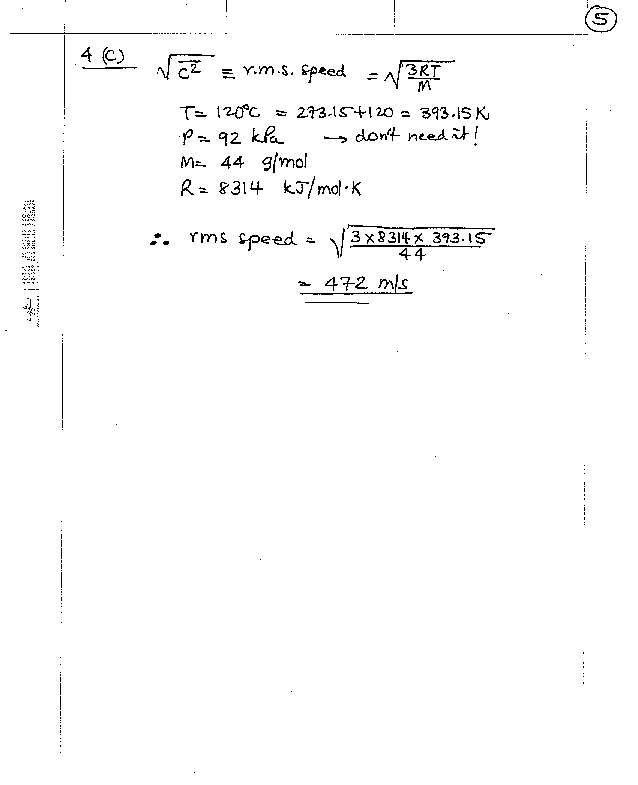 5
4 (C) √c̄² ≡ r.m.s. speed = √(3RT/M)
T = 120°C = 273.15+120 = 393.15 K
P = 92 kPa → don't need it!
M = 44 g/mol
R = 8314 kJ/mol·K
∴ rms speed = √(3×8314×393.15/44)
= 472 m/s